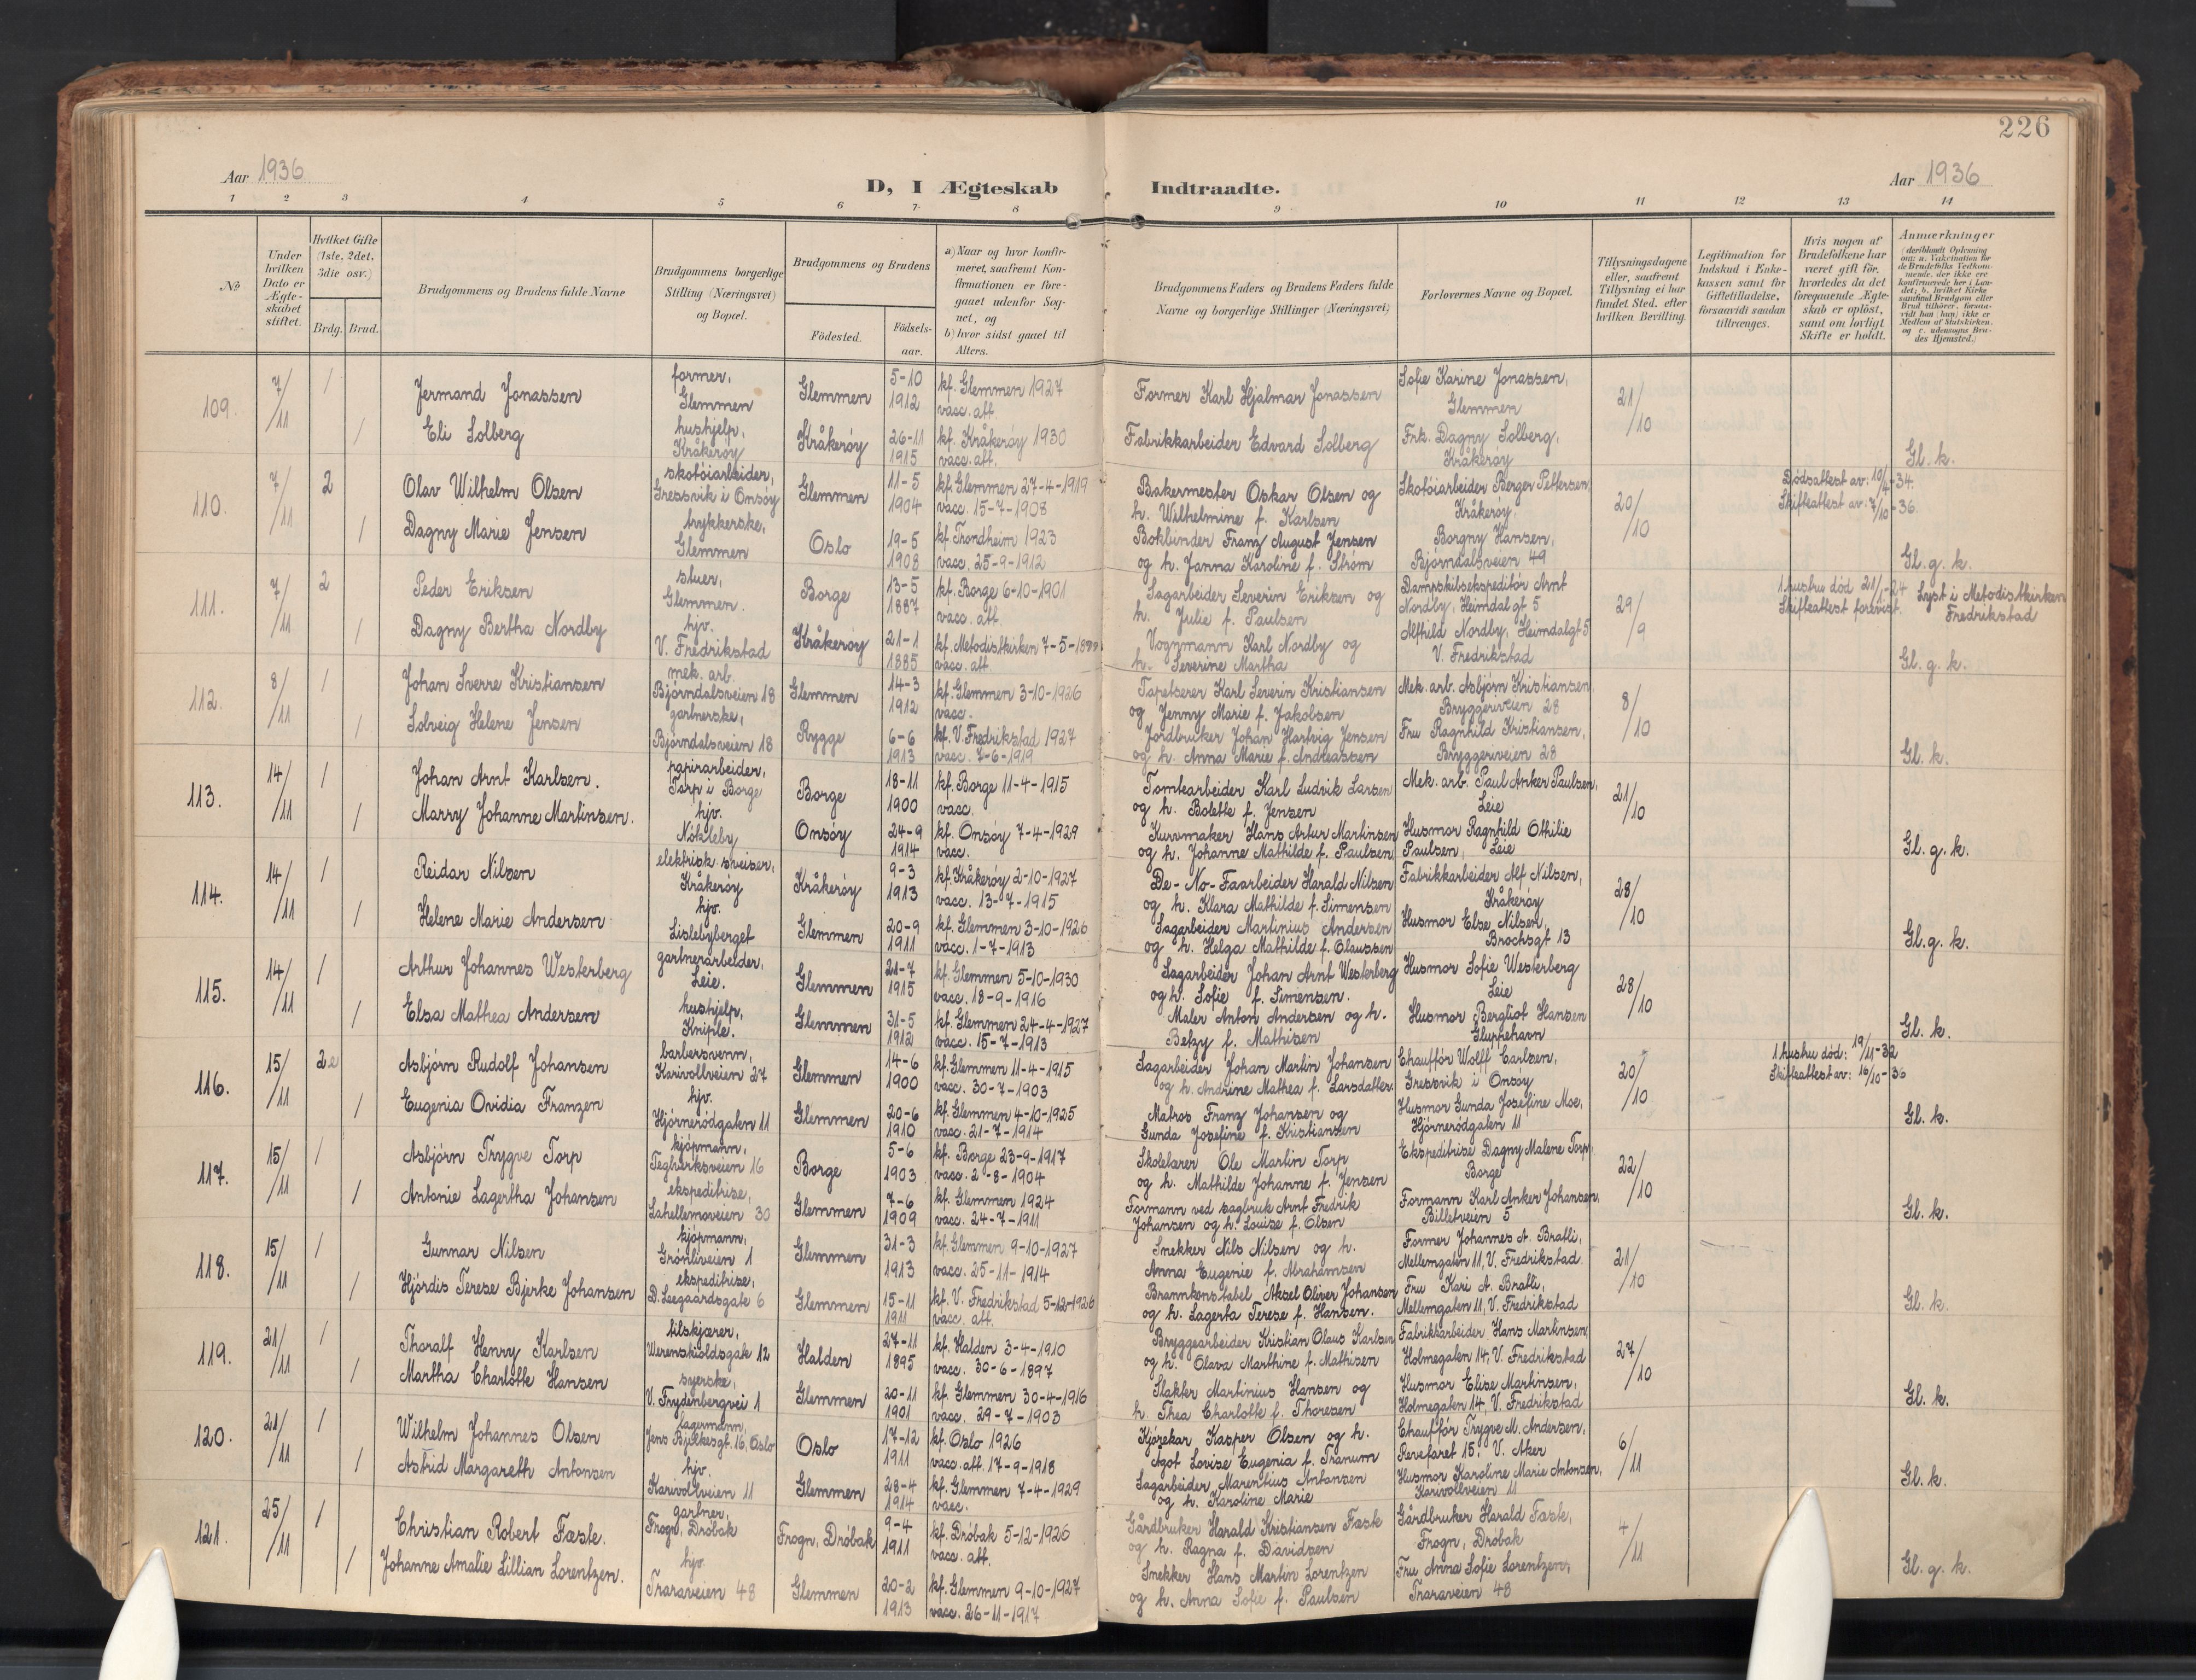 226
Aar 1936
D, I Ægteskab Indtraadte.
Aar 1936
1 2 3 4 5 6 7 8 9 10 11 12 13 14
No
Under hvilken Dato er Ægteskabet stiftet.
Hvilket Gifte (1ste, 2det, 3die osv.)
Brdg. Brud.
Brudgommens og Brudens fulde Navne
Brudgommens borgerlige Stilling (Næringsvei) og Bopæl.
Brudgommens og Brudens
Födested.
Födsels-aar.
a) Naar og hvor konfirmeret, saafremt Konfirmationen er foregaaet udenfor Sognet, og
b) hvor sidst gaael til Alters.
Brudgommens Faders og Brudens Faders fulde Navne og borgerlige Stillinger (Næringsvei)
Forlovernes Navne og Bopæl.
Tillysningsdagene eller, saafremt Tillysning ei har fundet Sted, efter hvilken Bevilling.
Legitimation for Indskud i Enkekassen samt for Giftetilladelse, forsaavidt saadan tiltrænges.
Hvis nogen af Brudefolkene har været gift för, hvorledes da det foregaaende Ægteskab er oplöst, samt om lovligt Skifte er holdt.
Anmærkninger
109. 7/11 1 Jermand Jonassen former, Glemmen Glemmen 5-10 1912 kf. Glemmen 1927 vacc. att. Former Karl Hjalmar Jonassen Sofie Karine Jonassen, Glemmen 21/10
1 Eli Solberg hushjelp, Kråkerøy Kråkerøy 26-11 1915 kf. Kråkerøy 1930 vacc. att. Fabrikkarbeider Edvard Solberg Frk. Dagny Solberg, Kråkerøy Gl. k.
110. 7/11 2 Olav Wilhelm Olsen skotöiarbeider, Gressvik i Onsøy Glemmen 11-5 1904 kf. Glemmen 27-4-1919 vacc. 15-7-1908 Bakermester Oskar Olsen og h. Wilhelmine f. Karlsen Skotöiarbeider Berger Pettersen, Kråkerøy. 20/10 Dødsattest av: 19/4-34. Skifteattest av: 7/10-36.
1 Dagny Marie Jensen trykkerske, Glemmen Oslo 19-5 1908 kf Trondheim 1923 vacc. 25-9-1912 Bokbinder Franz August Jensen og h. Janna Karoline f. Strøm Borgny Hansen, Bjørndalsveien 49 Gl. g. k.
111. 7/11 2 Peder Eriksen stuer, Glemmen. Borge 13-5 1887 kf. Borge 6-10-1901 vacc. att. Sagarbeider Severin Eriksen og h. Julie f. Paulsen Dampskibsekspeditör Arnt Nordby, Heimdal gt 5 29/9 1 hustru död 21/1-24 Skifteattest forevist. Lyst i Metodistkirken Fredrikstad
1 Dagny Bertha Nordby hjv. V. Fredrikstad Kråkerøy 21-1 1885 kf. Metodistkirken 7-5- vacc. att. Vognmann Karl Nordby og h. Severine Martha Alfhild Nordby, Heimdalgt 5 V. Fredrikstad Gl. g. k.
112. 8/11 1 Johan Sverre Kristiansen mek. arb. Bjørndalsveien 18 Glemmen 14-3 1912 kf. Glemmen 3-10-1926 vacc. Tapetserer Karl Severin Kristiansen og Jenny Marie f. Jakobsen Mek. arb. Asbjørn Kristiansen, Bryggeriveien 28 8/10
1 Solveig Helene Jensen gartnerske, Bjørndalsveien 18 Rygge 6-6 1913 kf. V. Fredrikstad 1927 vacc. 7-6-1919 Jordbruker Johan Hartvig Jensen og h. Anna Marie f. Andreassen Fru Ragnhild Kristiansen, Bryggeriveien 28 Gl. k.
113. 14/11 1 Johan Arnt Karlsen. papirarbeider, Torp i Borge Borge 18-11 1900 kf. Borge 11-4-1915 vacc. Tomtearbeider Karl Ludvik Larsen og h. Bolette f. Jensen Mek. arb. Paul Anker Paulsen, Leie 21/10
1 Marry Johanne Martinsen. hjv. Nökleby Onsøy 24-9 1914 kf. Onsøy 7-4-1929 vacc. Kurvmaker Hans Artur Martinsen og h. Johanne Mathilde f. Paulsen Husmor Ragnhild Othilie Paulsen, Leie Gl. g. k.
114. 14/11 1 Reidar Nilsen elektrisk sveiser, Kråkerøy Kråkerøy 9-3 1913 kf. Kråkerøy 2-10-1927 vacc. 13-7-1915 De-No-Faarbeider Harald Nilsen og h. Klara Mathilde f. Simensen Fabrikkarbeider Alf Nilsen, Kråkerøy 28/10
1 Helene Marie Andersen hjv. Lislebyberget Glemmen 20-9 1911 kf. Glemmen 3-10-1926 vacc. 1-7-1913 Sagarbeider Martinius Andersen og h. Helga Mathilde f. Olaussen Husmor Else Nilsen, Brochsgt 13 Gl. g. k.
115. 14/11 1 Arthur Johannes Westerberg gartnerarbeider, Leie. Glemmen 21-7 1915 kf. Glemmen 5-10-1930 vacc. 18-9-1916 Sagarbeider Johan Arnt Westerberg og h. Sofie f. Simensen. Husmor Sofie Westerberg Leie 28/10
1 Elsa Mathea Andersen hushjelp, Kniple. Glemmen 31-5 1912 kf. Glemmen 24-4-1927 vacc. 15-7-1913 Maler Anton Andersen og h. Betzy f. Mathisen Husmor Bergliot Hansen Gluppehavn Gl. k.
116. 15/11 2 Asbjørn Rudolf Johansen barbersvenn, Karivollveien 27 Glemmen 14-6 1900 kf. Glemmen 11-4-1915 vacc. 30-7-1903 Sagarbeider Johan Martin Johansen og h. Andrine Mathea f. Larsdatter. Chauffør Wolff Carlsen, Gressvik i Onsøy 20/10 1 hustru död: 19/11-32 Skifteattest av: 16/10-36
1 Eugenia Ovidia Franzen hjv. Hjörnerödgaten 11 Glemmen 20-6 1910 kf. Glemmen 4-10-1925 vacc. 21-7-1914 Matros Franz Johansen og Gunda Josefine f. Kristiansen Husmor Gunda Josefine Moe, Hjörnerödgaten 11 Gl. k.
117. 15/11 1 Asbjørn Trygve Torp kjöpmann, Teglverksveien 16 Borge 5-6 1903 kf. Borge 23-9-1917 vacc. 2-8-1904 Skolelærer Ole Martin Torp og h. Mathilde Johanne f. Jensen Ekspeditrise Dagny Malene Torp, Borge 22/10
1 Antonie Lagertha Johansen ekspeditrise, Lahellemoveien 30 Glemmen 7-6 1909 kf. Glemmen 1924 vacc. 24-7-1911 Formann ved sagbruk Arnt Fredrik Johansen og h. Louise f. Olsen Formann Karl Anker Johansen, Billetveien 5 Gl. k.
118. 15/11 1 Gunnar Nilsen kjöpmann, Grönliveien 1 Glemmen 31-3 1913 kf. Glemmen 9-10-1927 vacc. 25-11-1914 Snekker Nils Nilsen og h. Anna Eugenie f. Abrahamsen Former Johannes A. Bratli, Mellemgaten 11, V. Fredrikstad 21/10
1 Hjördis Terese Bjerke Johansen ekspeditrise, D. Leegaardsgate 6 Glemmen 15-11 1911 kf. V. Fredrikstad 5-12-1926 vacc. att. Brannkonstabel Aksel Oliver Johansen og h. Lagerta Terese f. Hansen. Fru Kari A. Bratli, Mellemgaten 11, V. Fredrikstad Gl. k.
119. 21/11 1 Thoralf Henry Karlsen tilskjærer, Werenskioldsgate 12 Halden 27-11 1895 kf. Halden 3-4-1910 vacc. 30-6-1897 Bryggearbeider Kristian Olaus Karlsen og h. Olava Marthine f. Mathisen Fabrikkarbeider Hans Martinsen, Holmegaten 14, V. Fredrikstad 27/10
1 Martha Charlotte Hansen syerske, V. Frydenbergvei 1 Glemmen 20-11 1901 kf. Glemmen 30-4-1916 vacc. 29-7-1903 Slakter Martinius Hansen og h. Thea Charlotte f. Thoresen Husmor Elise Martinsen, Holmegaten 14, V. Fredrikstad Gl. k.
120. 21/11 1 Wilhelm Johannes Olsen lagermann, Jens Bjelkesgt. 16, Oslo Oslo 17-12 1911 kf. Oslo 1926 vacc. att. 17-9-1918 Kjörekar Kasper Olsen og h. Agot Lovise Eugenia f. Tranum Chauffør Trygve M. Andersen, Revefaret 15, V. Aker 6/11
1 Astrid Margareth Antonsen hjv. Karivollveien 11 Glemmen 28-4 1914 kf. Glemmen 7-4-1929 vacc. Sagarbeider Marentius Antonsen og h. Karoline Marie Husmor Karoline Marie Antonsen, Karivollveien 11 Gl. k.
121. 25/11 1 Christian Robert Fæste. gartner, Frogn, Dröbak Frogn, Dröbak 9-4 1911 kf. Dröbak 5-12-1926 vacc. att. Gårdbruker Harald Kristiansen Fæste og h. Ragna f. Davidsen Gårdbruker Harald Fæste, Frogn, Dröbak 4/11
1 Johanne Amalie Lillian Lorentzen. hjv. Traraveien 48 Glemmen 20-2 1913 kf. Glemmen 9-10-1927 vacc. 26-11-1917 Snekker Hans Martin Lorentzen og h. Anna Sofie f. Paulsen Fru Anna Sofie Lorentzen, Traraveien 48 Gl. g. k.